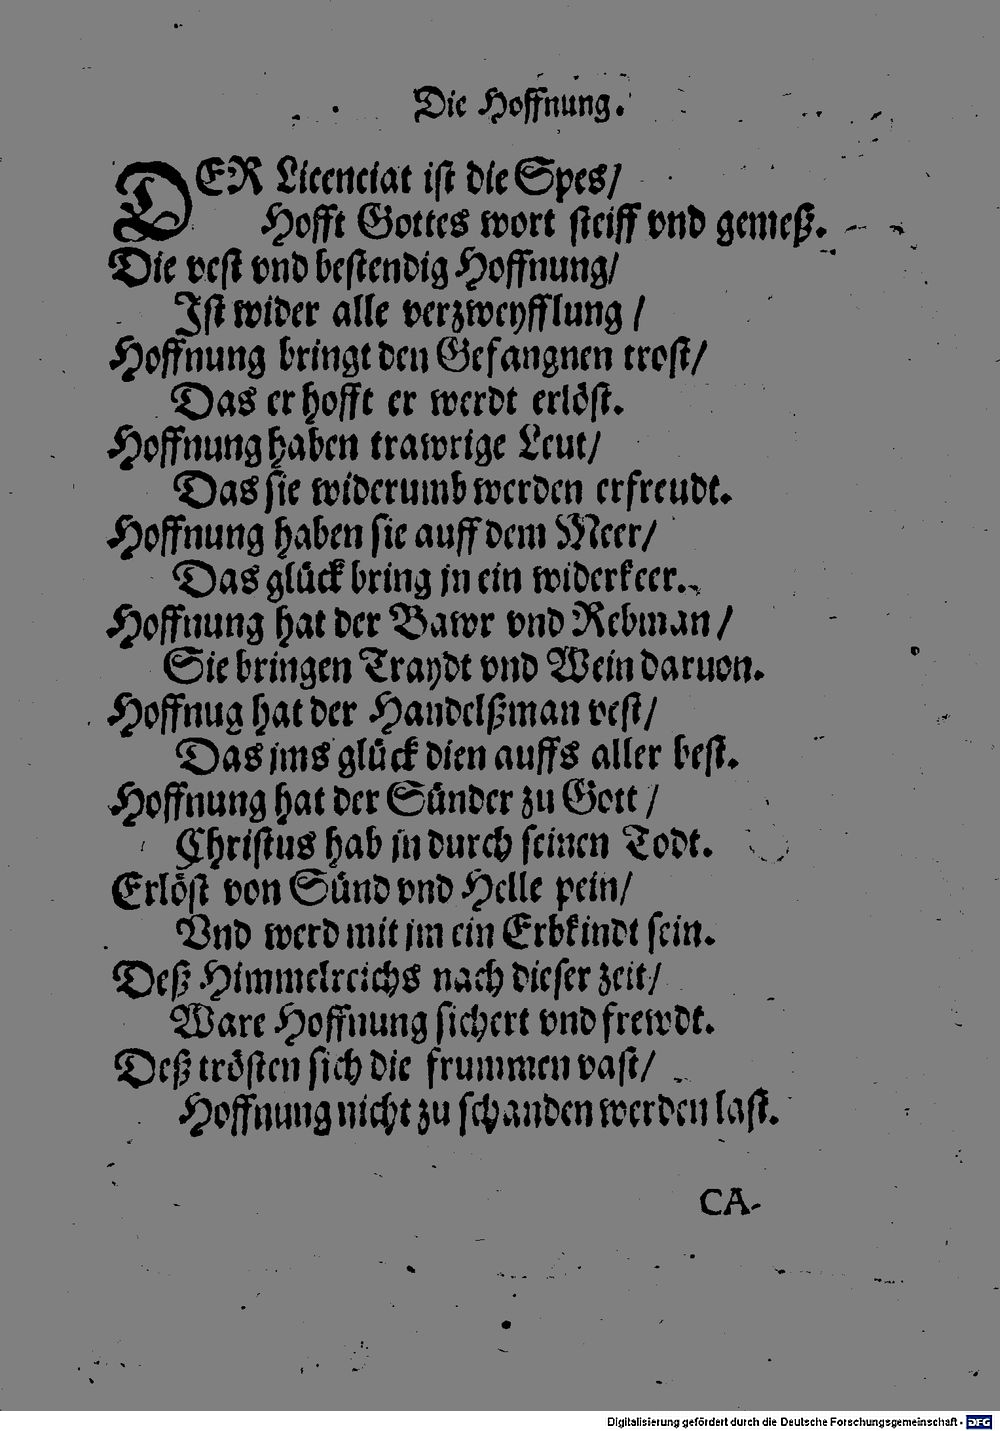 Die Hoffnung.
DER Licenciat ist die Spes/
Hofft Gottes wort steiff vnd gemeß.
Die vest vnd bestendig Hoffnung/
Ist wider alle verzweyfflung /
Hoffnung bringt den Gefangnen trost/
Das er hofft er werdt erlöst.
Hoffnung haben trawrige Leut/
Das sie widerumb werden erfreudt.
Hoffnung haben sie auff dem Meer/
Das glück bring jn ein widerkeer.
Hoffnung hat der Bawr vnd Rebman /
Sie bringen Traydt vnd Wein daruon.
Hoffnug hat der Handelßman vest/
Das jms glück dien auffs aller best.
Hoffnung hat der Sünder zu Gott /
Christus hab jn durch seinen Todt.
Erlöst von Sünd vnd Helle pein/
Vnd werd mit jm ein Erbkindt sein.
Deß Himmelreichs nach dieser zeit/
Ware Hoffnung sichert vnd frewdt.
Deß trösten sich die frummen vast/
Hoffnung nicht zu schanden werden last.
CA-
Digitalisierung gefördert durch die Deutsche Forschungsgemeinschaft - DFG